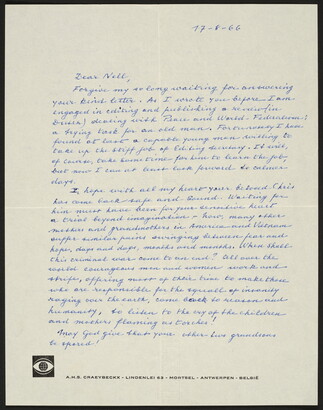 17-8-66
Dear Nell,
Forgive my so long waiting for answering
your kind letter. As I wrote you before I am
engaged in editing and publishing a review (in
Dutch) dealing with Peace and World-Federalism:
a trying task for an old man. Fortunately I have
found at least a capable young man willing to
take up the stiff job of Editing-Secretary. It will,
of course, take some time for him to learn the job
but now I can at least look forward to calmer
days.
I hope with all my heart your beloved Chris
has come back safe and sound. Waiting for
him must have been for your sensitive heart
a trial beyond imagination - how many other
mothers and grandmothers in America and Vietnam
suffer similar pains swinging between fear and
hope, days and days, months and months. When shall
this criminal war come to an end? All over the
world courageous men and women work and
strife, offering most of their time to make those
who are responsible for the uproll of insanity
raging over the earth, come back to reason and
humanity, to listen to the cry of the children
and mothers flaming as torches!
May God give that your other two grandsons
be spared!
A.H.S. CRAEYBECKX - LINDENLEI 62 - MORTSEL - ANTWERPEN - BELGIË